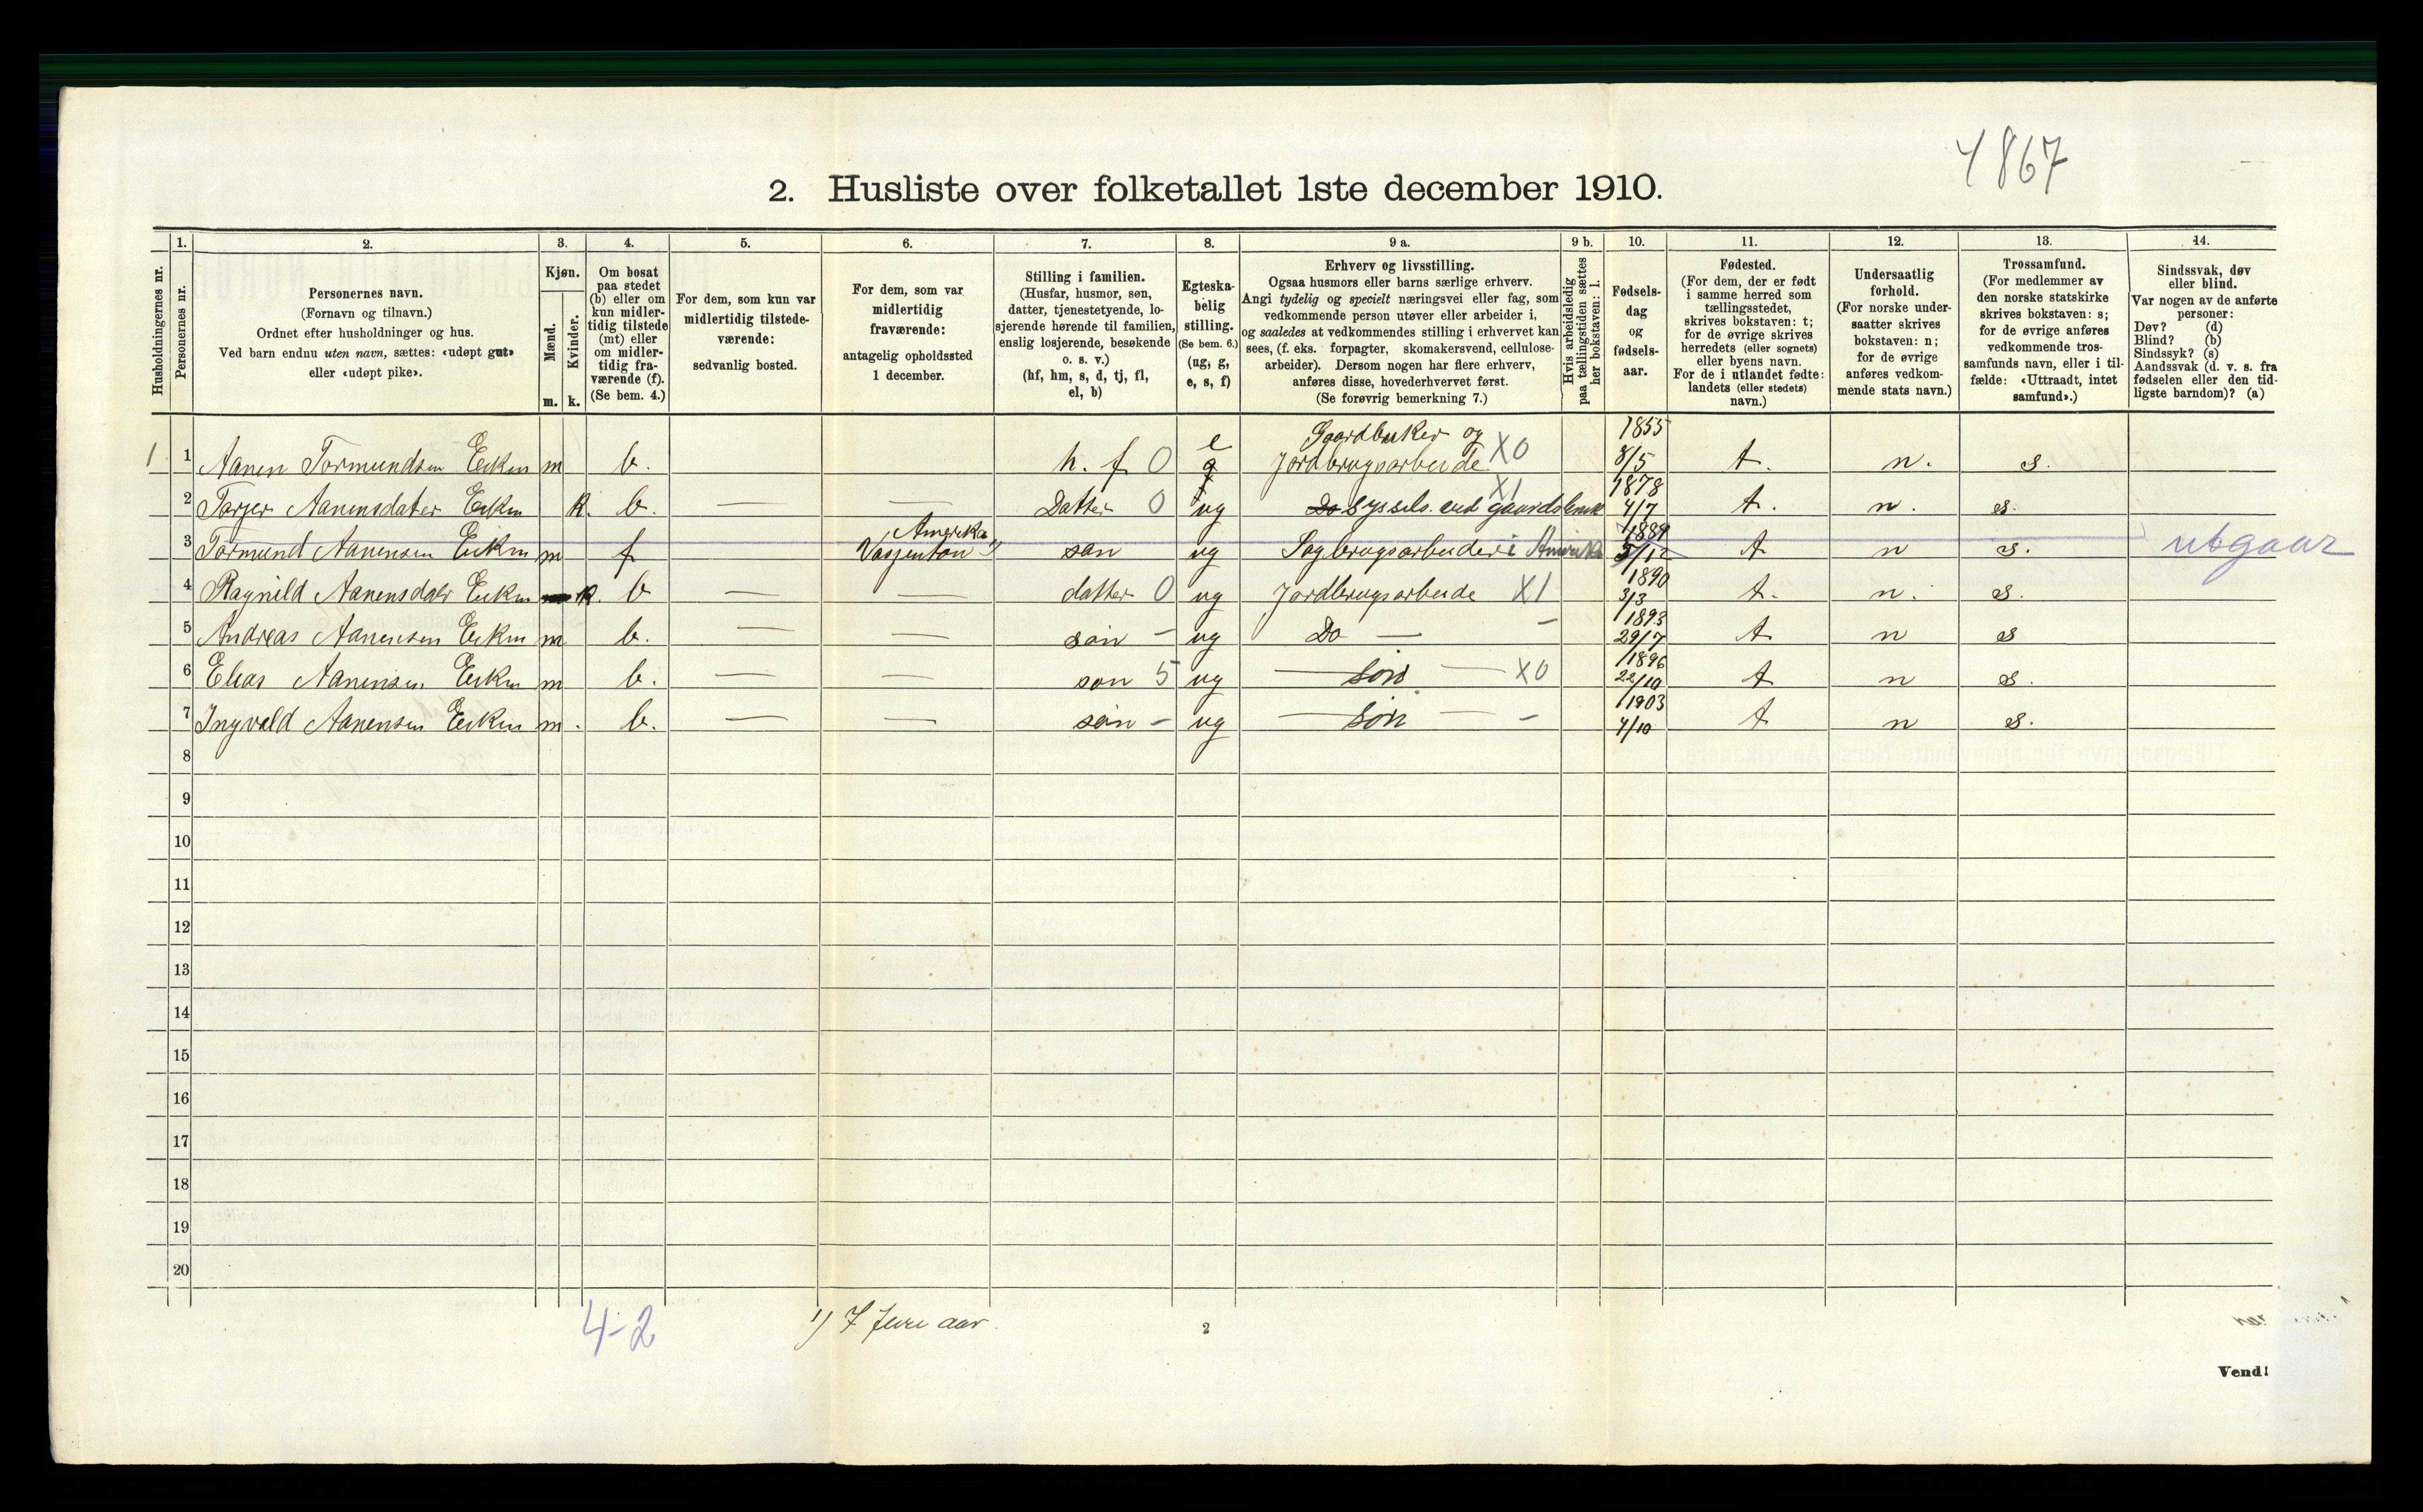 4867
2. Husliste over folketallet 1ste december 1910.
Husholdningernes nr.
1.
Personernes nr.
2.
Personernes navn.
(Fornavn og tilnavn.)
Ordnet efter husholdninger og hus.
Ved barn endnu uten navn, sættes: «udøpt gut»
eller «udøpt pike».
3.
Kjøn.
Mænd.
Kvinder.
m. k.
4.
Om bosat
paa stedet
(b) eller om
kun midler-
tidig tilstede
(mt) eller
om midler-
tidig fra-
værende (f).
(Se bem. 4.)
5.
For dem, som kun var
midlertidig tilstede-
værende:
sedvanlig bosted.
6.
For dem, som var
midlertidig
fraværende:
antagelig opholdssted
1 december.
7.
Stilling i familien.
(Husfar, husmor, søn,
datter, tjenestetyende, lo-
sjerende hørende til familien,
enslig losjerende, besøkende
o. s. v.)
(hf, hm, s, d, tj, fl,
el, b)
8.
Egteska-
belig
stilling.
(Se bem. 6.)
(ug, g,
e, s, f)
9 a.
Erhverv og livsstilling.
Ogsaa husmors eller barns særlige erhverv.
Angi tydelig og specielt næringsvei eller fag, som
vedkommende person utøver eller arbeider i,
og saaledes at vedkommendes stilling i erhvervet kan
sees, (f. eks. forpagter, skomakersvend, cellulose-
arbeider). Dersom nogen har flere erhverv,
anføres disse, hovederhvervet først.
(Se forøvrig bemerkning 7.)
9 b.
Hvis arbeidsledig
paa tællingstiden sættes
her bokstaven: l.
10.
Fødsels-
dag
og
fødsels-
aar.
11.
Fødested.
(For dem, der er født
i samme herred som
tællingsstedet,
skrives bokstaven: t;
for de øvrige skrives
herredets (eller sognets)
eller byens navn.
For de i utlandet fødte:
landets (eller stedets)
navn.)
12.
Undersaatlig
forhold.
(For norske under-
saatter skrives
bokstaven: n;
for de øvrige
anføres vedkom-
mende stats navn.)
13.
Trossamfund.
(For medlemmer av
den norske statskirke
skrives bokstaven: s;
for de øvrige anføres
vedkommende tros-
samfunds navn, eller i til-
fælde: «Uttraadt, intet
samfund».)
14.
Sindssvak, døv
eller blind.
Var nogen av de anførte
personer:
Døv? (d)
Blind? (b)
Sindssyk? (s)
Aandssvak (d. v. s. fra
fødselen eller den tid-
ligste barndom)? (a)
1 1 Aanen Tormundsen Eeken m b. h. f 0 e g Gaardbruker og Jordbrugsarbeide X0 1855 8/5 t. n. s.
2 Torjer Aanensdater Eeken k. b. — — Datter 0 ug Do syssels. ved gaardsbruk X1 1878 4/7 t. n. s.
3 Tormund Aanensen Eeken m f Amerika Vasjenton 1) søn ug Sagbrugsarbeider i Amerika 1889 5/12 t n s. utgaar
4 Ragnild Aanensdatr Eeken k. b — — datter 0 ug Jordbrugsarbeide X1 1890 3/3 t. n. s.
5 Andreas Aanensen Eeken m b. — — søn - ug Do — - 1893 29/7 t n s
6 Elias Aanensen Eeken m b. — — søn 5 ug — søn — X0 1896 22/10 t n s.
7 Ingvald Aanensen Eeken m. b. — — søn - ug — søn — - 1903 4/10 t n s.
8
9
10
11
12
13
14
15
16
17
18
19
20
4-2
1) 7
aar.
2
Vend!